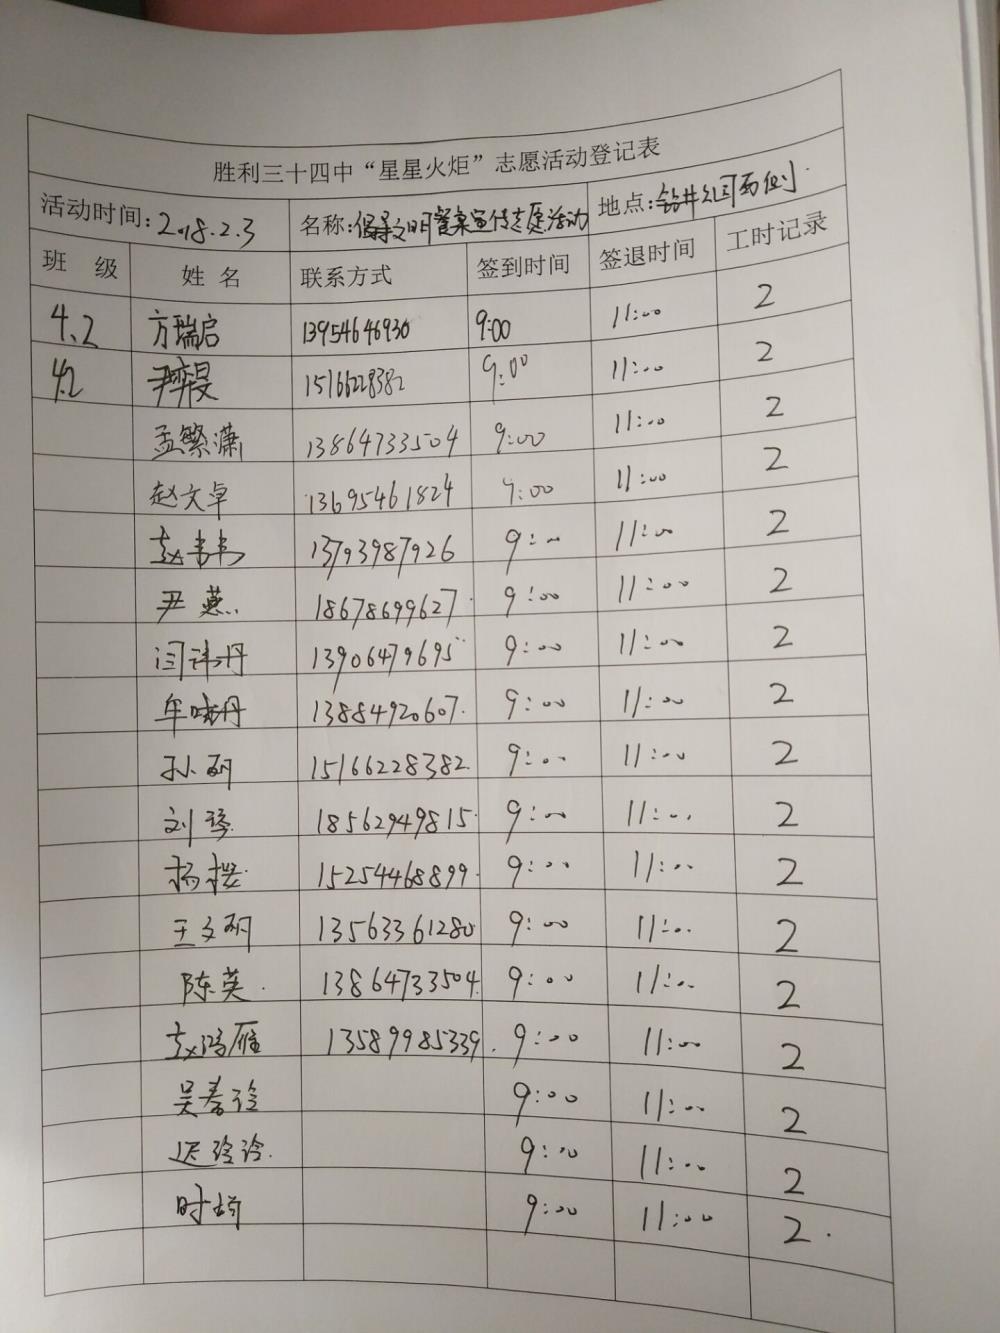 胜利三十四中“星星火炬”志愿活动登记表
活动时间：2018.2.3 名称：倡导文明餐桌宣传志愿活动 地点：钻井公司西侧
班 级 姓 名 联系方式 签到时间 签退时间 工时记录
4.2 方瑞启 13954646930 9:00 11:00 2
4.2 尹奕旻 15166228382 9:00 11:00 2
孟繁潇 13864733504 9:00 11:00 2
赵文卓 13695461824 9:00 11:00 2
赵 13793987926 9:00 11:00 2
尹燕 18678699627 9:00 11:00 2
闫 丹 13906479695 9:00 11:00 2
牟晓丹 13884920607 9:00 11:00 2
孙丽 15166228382 9:00 11:00 2
刘琴 18562949815 9:00 11:00 2
杨樱 15254468899 9:00 11:00 2
王文丽 13563361280 9:00 11:00 2
陈英 13864733504 9:00 11:00 2
赵鸿雁 13589985339 9:00 11:00 2
吴春玲 9:00 11:00 2
迟玲玲 9:00 11:00 2
时 9:00 11:00 2